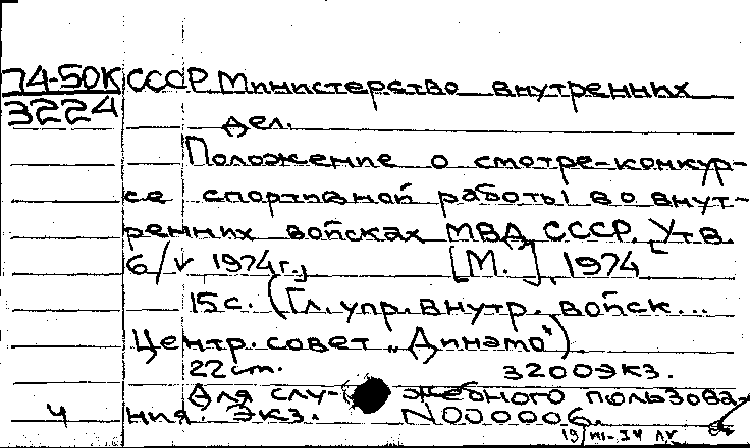 74-50К СССР Министерство внутренних
3224 дел.
Положение о смотре-конкур-
се спортивной работы во внут-
ренних войсках МВД СССР. [Утв.
6/V 1974г.] [М.], 1974
15 с. (Гл. упр. внутр. войск...
Центр. совет „Динамо").
22 см. 3200 экз.
Для слу- жебного пользова-
4 ния. Экз. N000006.